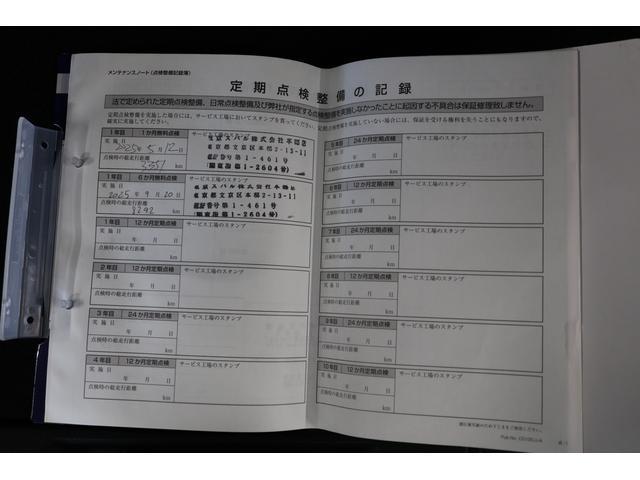 メンテナンスノート(点検整備記録簿)
定期点検整備の記録
法で定められた定期点検整備、日常点検整備及び弊社が指定する点検整備を実施しなかったことに起因する不具合は保証修理致しません。
定期点検整備を実施した場合には、サービス工場においてスタンプを貰ってください。
確実に実施してください。
1年目 1か月無料点検 サービス工場のスタンプ
実施日
2025年5月12日
点検時の総走行距離
km
東京スバル株式会社本郷店
東京都文京区本郷2-13-11
認証番号第1-461号
(関東指第1-2604号)
1年目 6か月無料点検 サービス工場のスタンプ
実施日
2025年9月20日
点検時の総走行距離
8292 km
東京スバル株式会社本郷店
東京都文京区本郷2-13-11
認証番号第1-461号
(関東指第1-2604号)
1年目 12か月定期点検 サービス工場のスタンプ
実施日
年 月 日
点検時の総走行距離
km
2年目 12か月定期点検 サービス工場のスタンプ
実施日
年 月 日
点検時の総走行距離
km
3年目 24か月定期点検 サービス工場のスタンプ
実施日
年 月 日
点検時の総走行距離
km
4年目 12か月定期点検 サービス工場のスタンプ
実施日
年 月 日
点検時の総走行距離
km
5年目 24か月定期点検 サービス工場のスタンプ
実施日
年 月 日
点検時の総走行距離
km
6年目 12か月定期点検 サービス工場のスタンプ
実施日
年 月 日
点検時の総走行距離
km
7年目 24か月定期点検 サービス工場のスタンプ
実施日
年 月 日
点検時の総走行距離
km
8年目 12か月定期点検 サービス工場のスタンプ
実施日
年 月 日
点検時の総走行距離
km
9年目 24か月定期点検 サービス工場のスタンプ
実施日
年 月 日
点検時の総走行距離
km
10年目 12か月定期点検 サービス工場のスタンプ
実施日
年 月 日
点検時の総走行距離
km